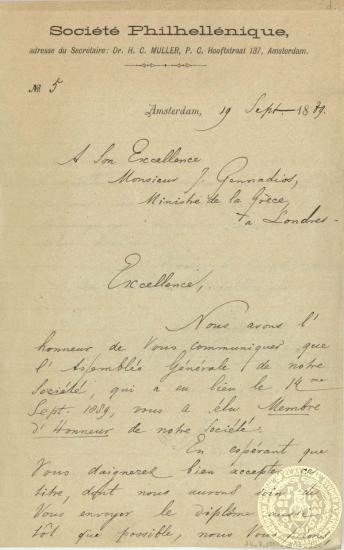 Société Philhellénique,
adresse du Secrétaire: Dr. H. C. MULLER, P. C. Hooftstraat 137, Amsterdam.
№ 5
Amsterdam, 19 Sept. 1889.
A Son Excellence
Monsieur J. Gennadios,
Ministre de la Grèce,
à Londres
Excellence,
Nous avons l'
honneur de Vous communiquer que
l'Assemblée Générale de notre
Société, qui a eu lieu le 14me
Sept. 1889, vous a élu Membre
d'Honneur de notre Société.
En espérant que
Vous daignerez bien accepter ce
titre, dont nous aurons soin de
Vous envoyer le Diplôme aussi-
tôt que possible, nous Vous